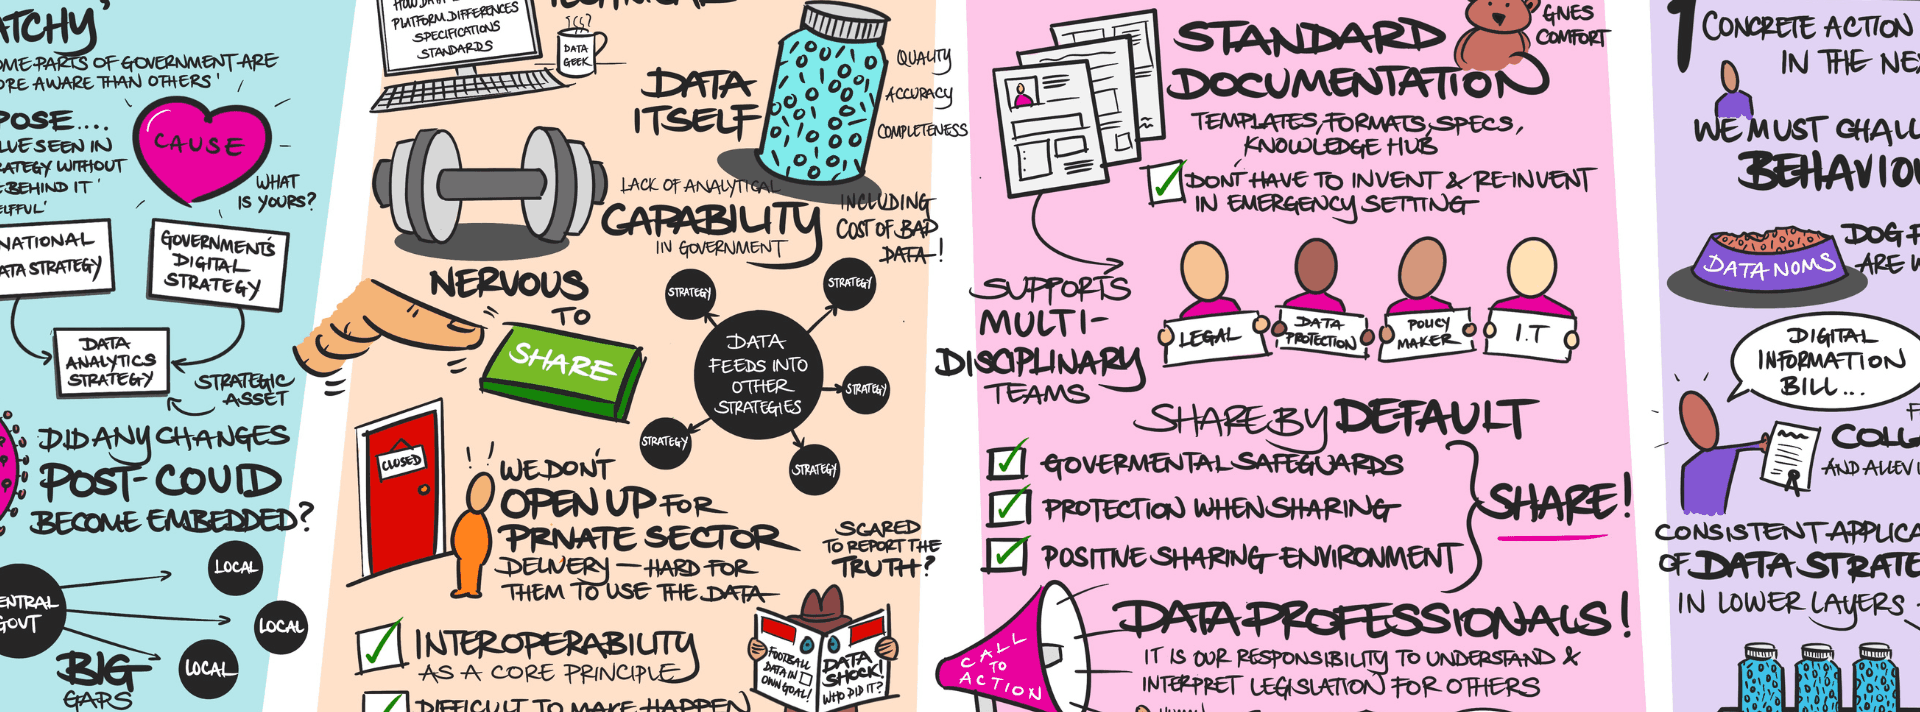 PATCHY'
SOME PARTS OF GOVERNMENT ARE
MORE AWARE THAN OTHERS'
CAUSE
WHAT
IS YOURS?
SEEN IN
STRATEGY WITHOUT
BEHIND IT'
NATIONAL
DATA STRATEGY
GOVERNMENT'S
DIGITAL
STRATEGY
DATA
ANALYTICS
STRATEGY
STRATEGIC
ASSET
DID ANY CHANGES
POST-COVID
BECOME EMBEDDED?
CENTRAL
GOVT
LOCAL
LOCAL
LOCAL
BIG
GAPS
PLATFORM DIFFERENCES
SPECIFICATIONS
STANDARDS
DATA
GEEK
DATA
ITSELF
QUALITY
ACCURACY
COMPLETENESS
LACK OF ANALYTICAL
CAPABILITY
IN GOVERNMENT
INCLUDING
COST OF BAD
DATA!
NERVOUS
TO
SHARE
DATA
FEEDS INTO
OTHER
STRATEGIES
STRATEGY
STRATEGY
STRATEGY
STRATEGY
STRATEGY
CLOSED
WE DON'T
OPEN UP FOR
PRIVATE SECTOR
DELIVERY — HARD FOR
THEM TO USE THE DATA
SCARED
TO REPORT THE
TRUTH?
FOOTBALL
DATA IN
OWN GOAL!
DATA
SHOCK!
WHO DID IT?
INTEROPERABILITY
AS A CORE PRINCIPLE
DIFFICULT TO MAKE HAPPEN
STANDARD
DOCUMENTATION
GIVES
COMFORT
TEMPLATES, FORMATS, SPECS,
KNOWLEDGE HUB
DON'T HAVE TO INVENT & RE-INVENT
IN EMERGENCY SETTING
SUPPORTS
MULTI-
DISCIPLINARY
TEAMS
LEGAL
DATA
PROTECTION
POLICY
MAKER
I.T
SHARE BY DEFAULT
GOVERMENTAL SAFEGUARDS
PROTECTION WHEN SHARING
POSITIVE SHARING ENVIRONMENT
SHARE!
CALL
TO
ACTION
DATA PROFESSIONALS!
IT IS OUR RESPONSIBILITY TO UNDERSTAND &
INTERPRET LEGISLATION FOR OTHERS
1 CONCRETE ACTION
IN THE
WE MUST
DATA NOMS
DOG
ARE
DIGITAL
INFORMATION
BILL...
AND
CONSISTENT
OF DATA
IN LOWER LAYERS